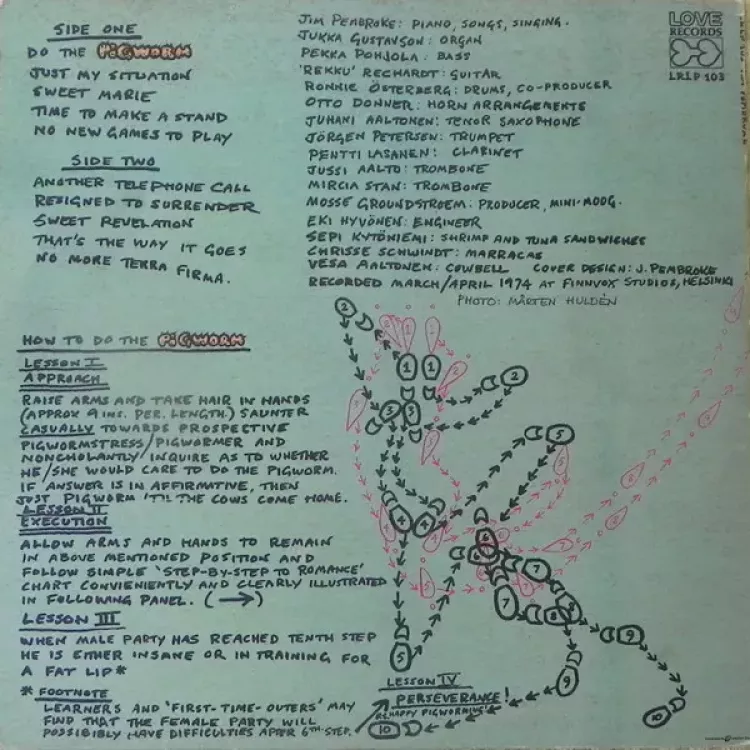 SIDE ONE
DO THE PIGWORM
JUST MY SITUATION
SWEET MARIE
TIME TO MAKE A STAND
NO NEW GAMES TO PLAY
SIDE TWO
ANOTHER TELEPHONE CALL
RESIGNED TO SURRENDER
SWEET REVELATION
THAT'S THE WAY IT GOES
NO MORE TERRA FIRMA.
JIM PEMBROKE: PIANO, SONGS, SINGING.
JUKKA GUSTAVSON: ORGAN
PEKKA POHJOLA: BASS
'REKKU' RECHARDT: GUITAR
RONNIE ÖSTERBERG: DRUMS, CO-PRODUCER
OTTO DONNER: HORN ARRANGEMENTS
JUHANI AALTONEN: TENOR SAXOPHONE
JÖRGEN PETERSEN: TRUMPET
PENTTI LASANEN: CLARINET
JUSSI AALTO: TROMBONE
MIRCIA STAN: TROMBONE
MOSSE GROUNDSTROEM: PRODUCER, MINI-MOOG.
EKI HYVÖNEN: ENGINEER
SEPI KYTÖNIEMI: SHRIMP AND TUNA SANDWICHES
CHRISSE SCHWINDT: MARRACAS
VESA AALTONEN: COWBELL COVER DESIGN: J. PEMBROKE
RECORDED MARCH/APRIL 1974 AT FINNVOX STUDIOS, HELSINKI
PHOTO: MÅRTEN HULDÉN
LOVE
RECORDS
LRLP 103
HOW TO DO THE PIGWORM
LESSON I
APPROACH
RAISE ARMS AND TAKE HAIR IN HANDS
(APPROX 9 INS. PER. LENGTH.) SAUNTER
CASUALLY TOWARDS PROSPECTIVE
PIGWORMSTRESS/PIGWORMER AND
NONCHOLANTLY INQUIRE AS TO WHETHER
HE/SHE WOULD CARE TO DO THE PIGWORM.
IF ANSWER IS IN AFFIRMATIVE, THEN
JUST PIGWORM 'TIL THE COWS COME HOME.
LESSON II
EXECUTION
ALLOW ARMS AND HANDS TO REMAIN
IN ABOVE MENTIONED POSITION AND
FOLLOW SIMPLE 'STEP-BY-STEP TO ROMANCE'
CHART CONVIENIENTLY AND CLEARLY ILLUSTRATED
IN FOLLOWING PANEL. (→)
LESSON III
WHEN MALE PARTY HAS REACHED TENTH STEP
HE IS EITHER INSANE OR IN TRAINING FOR
A FAT LIP*
* FOOTNOTE
LEARNERS AND 'FIRST-TIME-OUTERS' MAY
FIND THAT THE FEMALE PARTY WILL
POSSIBILY HAVE DIFFICULTIES AFTER 6TH STEP.
LESSON IV
PERSEVERANCE!
(HAPPY PIGWORMING)
2
1 1
2
3 3
5
4 4
6
6
7
7
8
9
5
9
10
10